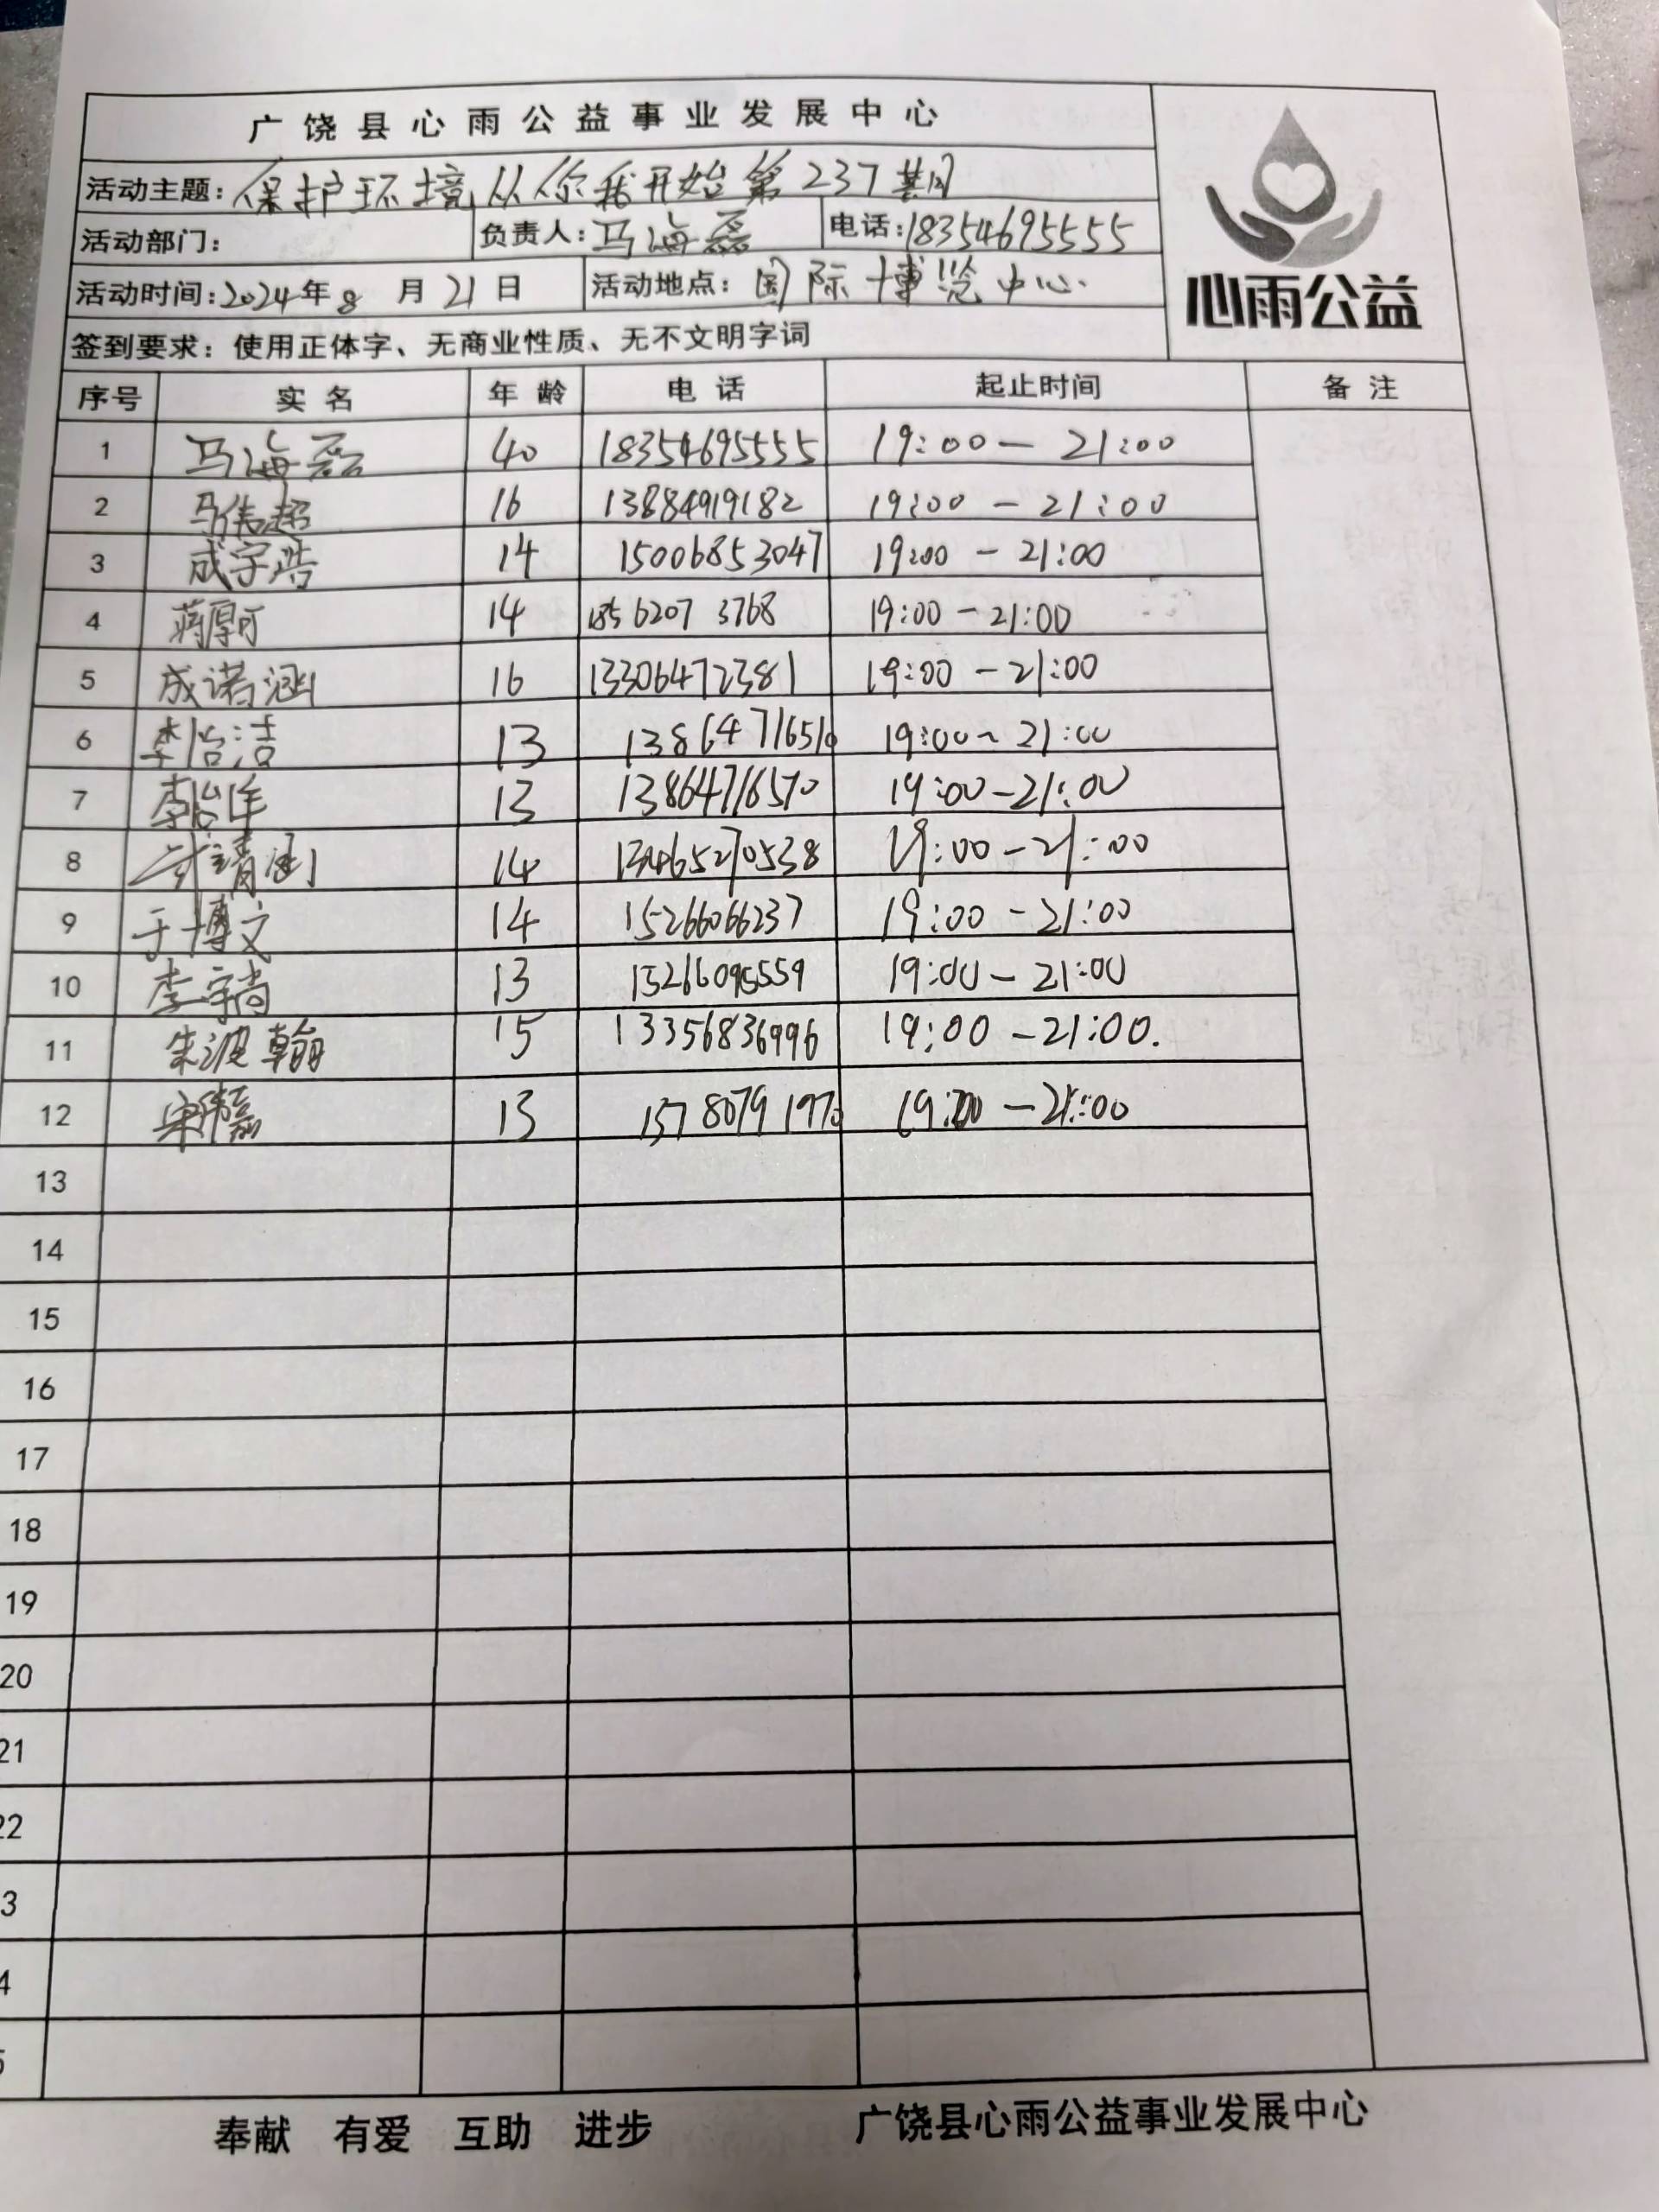 广饶县心雨公益事业发展中心
活动主题：保护环境从你我开始第237期
活动部门： 负责人：马海磊 电话：18354695555
活动时间：2024年8月21日 活动地点：国际博览中心
心雨公益
签到要求：使用正体字、无商业性质、无不文明字词
序号 实名 年龄 电话 起止时间 备注
1 马海磊 40 18354695555 19:00—21:00
2 马伟超 16 13884919182 19:00—21:00
3 成宇浩 14 15006853047 19:00—21:00
4 14 185 6207 3768 19:00—21:00
5 成诺涵 16 13306472381 19:00—21:00
6 李怡洁 13 13864716510 19:00~21:00
7 李怡洋 13 13864716570 19:00—21:00
8 14 19:00—21:00
9 于博文 14 15266066237 19:00—21:00
10 李宇尚 13 15266095559 19:00—21:00
11 朱浪翰 15 13356836996 19:00—21:00.
12 13 157 8079 1970 19:00—21:00
13
14
15
16
17
18
19
20
21
22
3
4
5
奉献 有爱 互助 进步 广饶县心雨公益事业发展中心